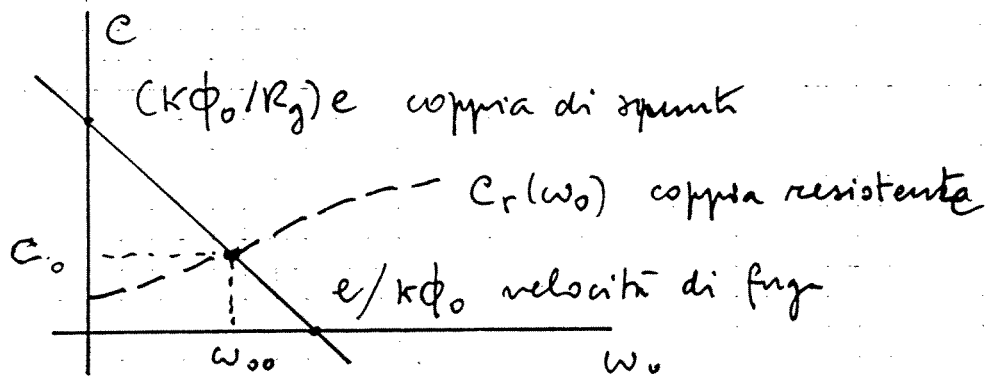 C
(κϕ₀/Rg)e coppia di spunto
Cr(ω₀) coppia resistente
C₀
e/κϕ₀ velocità di fuga
ω₀₀
ω₀